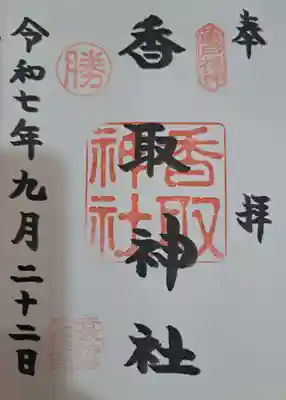 奉拝
香取神社
香取神社
勝
令和七年九月二十二日